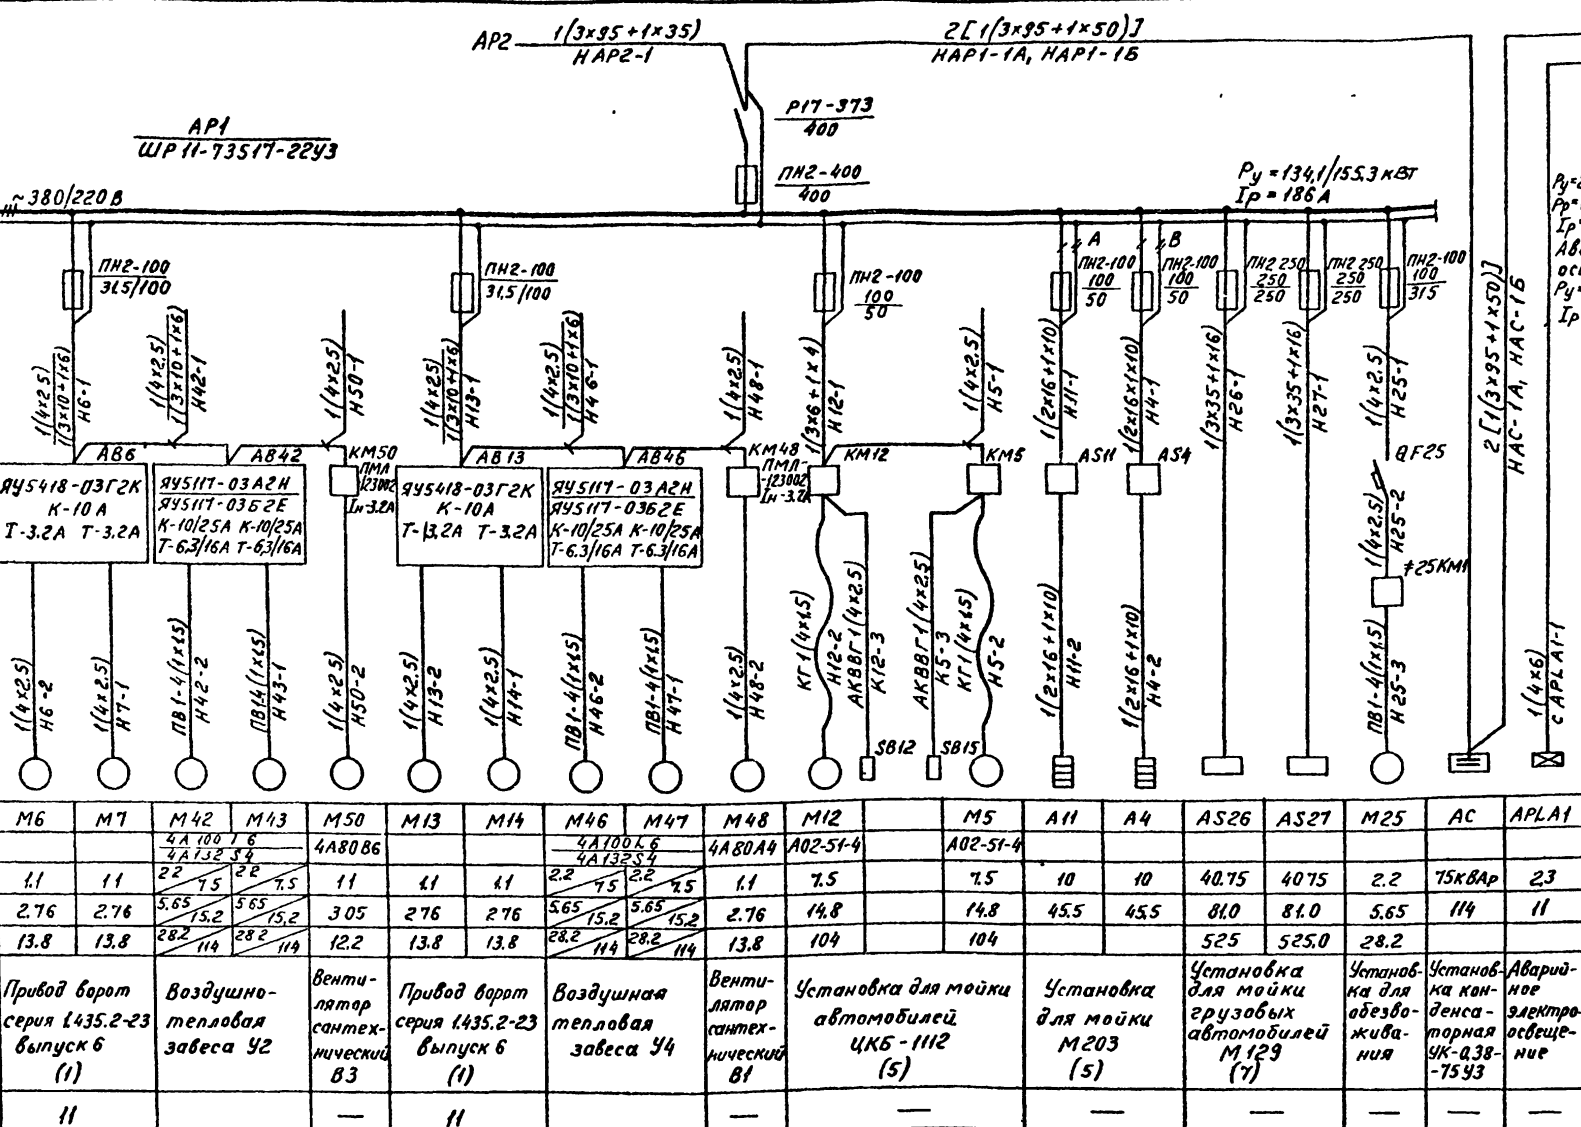 АР2
1(3×95+1×35)
НАР2-1
2[1(3×95+1×50)]
НАР1-1А, НАР1-1Б
АР1
ШР 11-73517-22У3
Р17-373
400
ПН2-400
400
~380/220 В
Ру = 134,1/155.3 кВт
Iр = 186 А
Ру=
Рр=
Iр=
Ру=
Iр
ПН2-100
31.5/100
ПН2-100
31,5/100
ПН2-100
100
50
А
ПН2-100
100
50
В
ПН2-100
100
50
ПН2 250
250
250
ПН2 250
250
250
ПН2-100
100
31.5
1(4×2.5)
1(3×10+1×6)
Н6-1
1(4×2.5)
1(3×10+1×6)
Н42-1
1(4×2.5)
Н50-1
1(4×2.5)
1(3×10+1×6)
Н13-1
1(4×2.5)
1(3×10+1×6)
Н46-1
1(4×2.5)
Н48-1
1(3×6+1×4)
Н12-1
1(4×2.5)
Н5-1
1(2×16+1×10)
Н11-1
1(2×16×1×10)
Н4-1
1(3×35+1×16)
Н26-1
1(3×35+1×16)
Н27-1
1(4×2.5)
Н25-1
2[1(3×95+1×50)]
НАС-1А, НАС-1Б
АВ6
АВ42
КМ50
ПМЛ
-123002
Iн-3.2А
АВ13
АВ46
КМ48
ПМЛ-
-123002
Iн-3.2А
КМ12
КМ5
АS11
АS4
QF25
ЯУ5418-03Г2К
К-10А
Т-3.2А Т-3.2А
ЯУ5117-03А2Н
ЯУ5117-03Б2Е
К-10/25А К-10/25А
Т-6.3/16А Т-6,3/16А
ЯУ5418-03Г2К
К-10А
Т-3.2А Т-3.2А
ЯУ5117-03А2Н
ЯУ5117-03Б2Е
К-10/25А К-10/25А
Т-6.3/16А Т-6.3/16А
1(4×2.5)
Н25-2
≠25КМ1
1(4×2.5)
Н6-2
1(4×2.5)
Н7-1
ПВ1-4(1×1.5)
Н42-2
ПВ1.4(1×1.5)
Н43-1
1(4×2.5)
Н50-2
1(4×2.5)
Н13-2
1(4×2.5)
Н14-1
ПВ1-4(1×1.5)
Н46-2
ПВ1-4(1×1.5)
Н47-1
1(4×2.5)
Н48-2
КГ1(4×1.5)
Н12-2
АКВВГ1(4×2.5)
К12-3
АКВВГ1(4×2.5)
К5-3
КГ1(4×1.5)
Н5-2
1(2×16+1×10)
Н11-2
1(2×16+1×10)
Н4-2
ПВ1-4(1×1.5)
Н25-3
1(4×6)
с АРLА1-1
SВ12
SВ15
М6 М7 М42 М43 М50 М13 М14 М46 М47 М48 М12 М5 А11 А4 АS26 АS27 М25 АС АРLА1
4А100L6
4А132S4
4А80В6
4А100L6
4А132S4
4А80А4 А02-51-4 А02-51-4
1.1 11 22 7.5 2.2 7.5 11 1.1 1.1 2.2 7.5 2.2 7.5 1.1 7.5 7.5 10 10 40.75 4075 2.2 75кВАр 2,3
2.76 2.76 5.65 15.2 5.65 15.2 305 276 276 5.65 15.2 5.65 15.2 2.76 14.8 14.8 45.5 45.5 81.0 81.0 5.65 114 11
13.8 13.8 28.2 114 28.2 114 12.2 13.8 13.8 28.2 114 28.2 114 13.8 104 104 525 525,0 28.2
Привод ворот
серия 1.435.2-23
выпуск 6
(1)
Воздушно-
тепловая
завеса У2
Венти-
лятор
сантех-
нический
В3
Привод ворот
серия 1.435.2-23
выпуск 6
(1)
Воздушная
тепловая
завеса У4
Венти-
лятор
сантех-
нический
В1
Установка для мойки
автомобилей
ЦКБ-1112
(5)
Установка
для мойки
М203
(5)
Установка
для мойки
грузовых
автомобилей
М129
(7)
Установ-
ка для
обезво-
жива-
ния
Установ-
ка кон-
денса-
торная
УК-0,38-
-75У3
Аварий-
ное
электро-
освеще-
ние
11 — 11 — — — — — — —